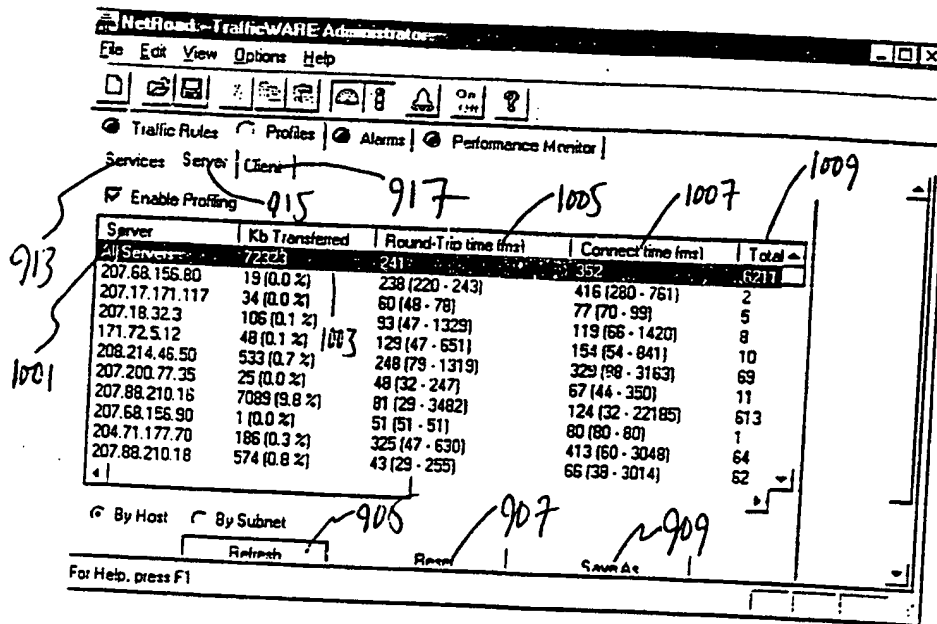 NetRoad:-TrafficWARE Administrator-
File Edit View Options Help
Traffic Rules Profiles Alarms Performance Monitor
1009
Services Server Client
1005 1007
Enable Profiling 915 917
Server Kb Transferred Round-Trip time (ms) Connect time (ms) Total
913
All Servers 72323 241 352 6211
207.68.156.80 19 (0.0 %) 238 (220 - 243) 416 (280 - 761) 2
207.17.171.117 34 (0.0 %) 60 (48 - 78) 77 (70 - 99) 5
207.18.32.3 106 (0.1 %) 93 (47 - 1329) 119 (66 - 1420) 8
171.72.5.12 48 (0.1 %) 1003 129 (47 - 651) 154 (54 - 841) 10
1001
208.214.46.50 533 (0.7 %) 248 (79 - 1319) 329 (98 - 3163) 69
207.200.77.35 25 (0.0 %) 48 (32 - 247) 67 (44 - 350) 11
207.88.210.16 7089 (9.8 %) 81 (29 - 3482) 124 (32 - 22185) 613
207.68.156.90 1 (0.0 %) 51 (51 - 51) 80 (80 - 80) 1
204.71.177.70 186 (0.3 %) 325 (47 - 630) 413 (60 - 3048) 64
207.88.210.18 574 (0.8 %) 43 (29 - 255) 66 (38 - 3014) 62
By Host By Subnet 905 907 909
Refresh Reset Save As
For Help, press F1